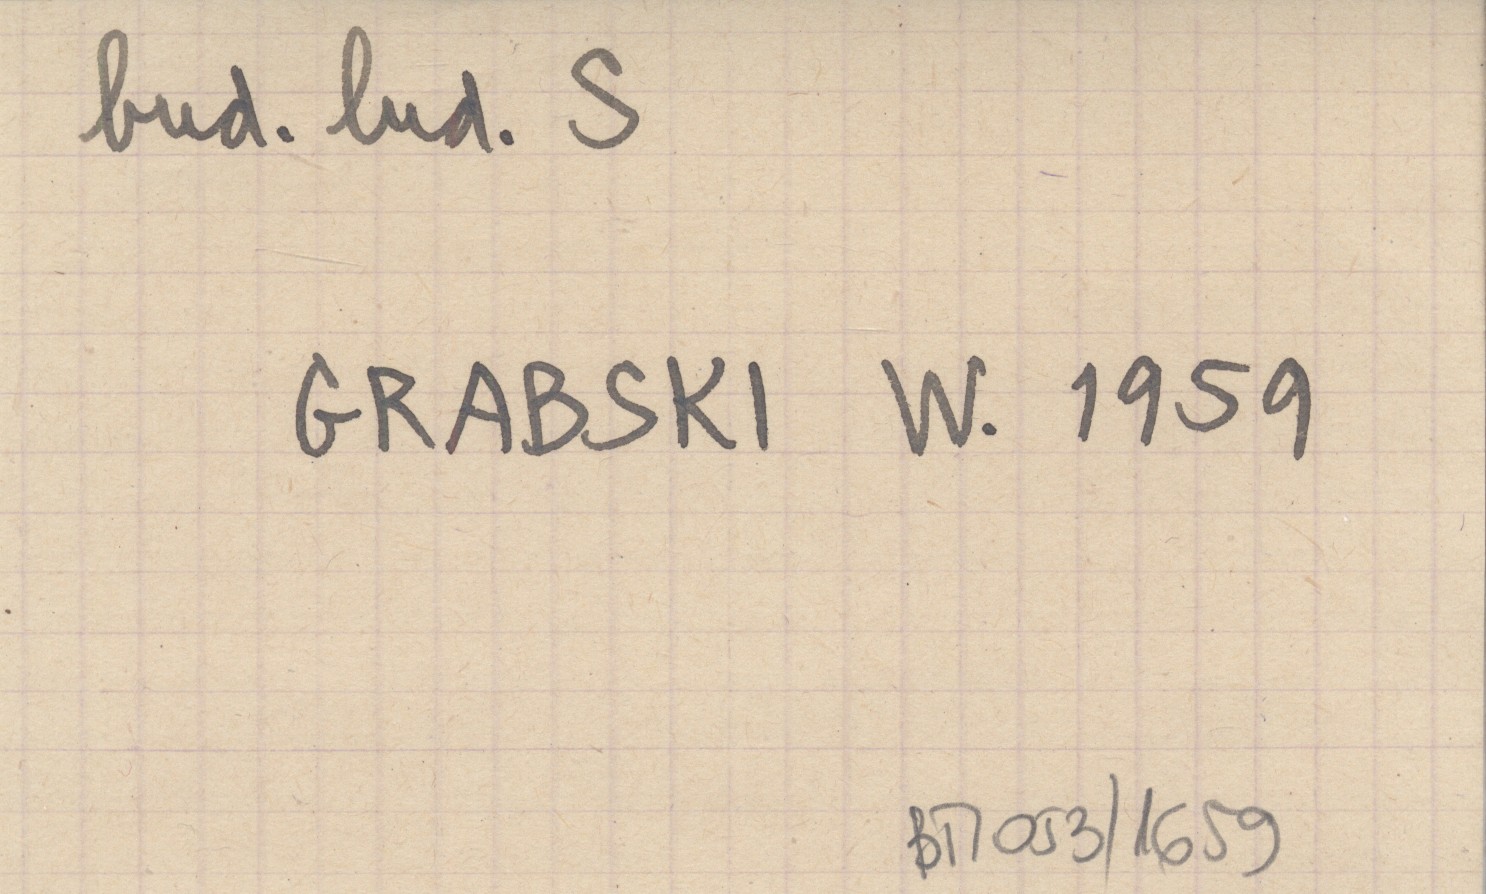 bud. lud. S
GRABSKI W. 1959
053/1659